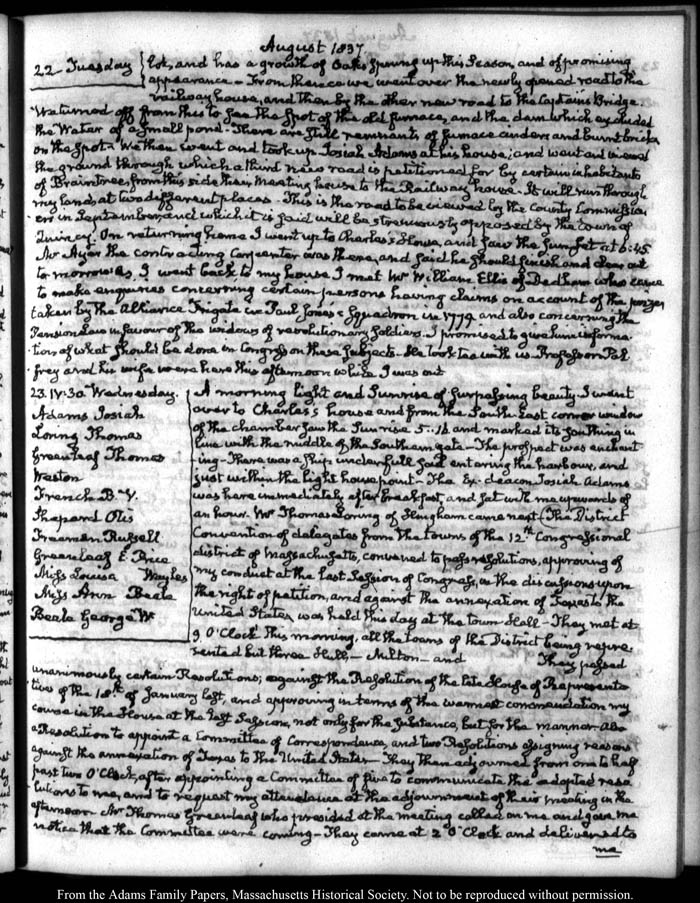 August 1837
22. Tuesday
lot, and has a growth of Oaks sprung up this Season, and of promising
appearance – From thence we went over the newly opened road to the
railway house, and then by the other new road to the Captain's Bridge.
We turned off from this to see the Spot of the old furnace, and the dam which excluded
the Water of a small pond – There are still remnants of furnace cinders and burnt bricks
on the Spot – We then went and took up Josiah Adams at his house; and went and viewed
the ground through which a third new road is petitioned for by certain inhabitants
of Braintree, from this side their Meeting house to the Railway house. It will run through
my lands at two different places. This is the road to be viewed by the County Commission-
ers in September, and which it is said will be strenuously opposed by the town of
Quincy. On returning home I went up to Charles's House, and saw the Sunset at 6:45
Mr Ayer the contracting Carpenter was there, and said he should finish and clear out
to-morrow. As I went back to my house I met Mr William Ellis of Dedham who came
to make enquiries concerning certain persons having claims on account of the prizes
taken by the Alliance Frigate in Paul Jones's Squadron in 1779 and also concerning the
Pension Law in favour of the widows of revolutionary Soldiers. I promised to give him informa-
tion of what should be done in Congress on these subjects – He took tea with us. Professor Pal-
frey and his wife were here this afternoon while I was out
23. IV:30. Wednesday.
Adams Josiah
Loring Thomas
Greenleaf Thomas
Weston
French B. V.
Shepard Otis
Freeman Russell
Greenleaf E. Price
Miss Louisa
Miss Ann Beale
Beale George W.
A morning light and Sunrise of surpassing beauty. I went
over to Charles's house and from the South East corner window
of the chamber saw the Sun rise 5:16 and marked its southing in
line with the middle of the Southern gate – The prospect was enchant-
ing – There was a ship under full sail entering the harbour, and
just within the light house point – The Ex-deacon Josiah Adams
was here immediately after breakfast, and sat with me upwards of
an hour. Mr Thomas Loring of Hingham came next – The District
Convention of delegates from the towns of the 12th Congressional
district of Massachusetts, convened to pass resolutions, approving of
my conduct at the last Session of Congress, in the discussions upon
the right of petition, and against the annexation of Texas to the
United States, was held this day at the town Hall – They met at
9 O'Clock this morning, all the towns of the District being repre-
sented but three Hull, – Milton – and They passed
unanimously certain Resolutions; against the Resolution of the late House of Representa-
tives of the 18th of January last, and approving in terms of the warmest commendation my
course in the House at the last Session, not only for the substance, but for the manner also
a Resolution to appoint a Committee of Correspondence, and two Resolutions assigning reasons
against the annexation of Texas to the United States – They then adjourned from one to half
past two O'Clock, after appointing a Committee of five to communicate the adopted reso-
lutions to me, and to request my attendance at the adjournment of their meeting in the
afternoon Mr Thomas Greenleaf who presided at the meeting called on me and gave me
notice that the Committee were coming – They came at 2 O'Clock and delivered to
me
From the Adams Family Papers, Massachusetts Historical Society. Not to be reproduced without permission.